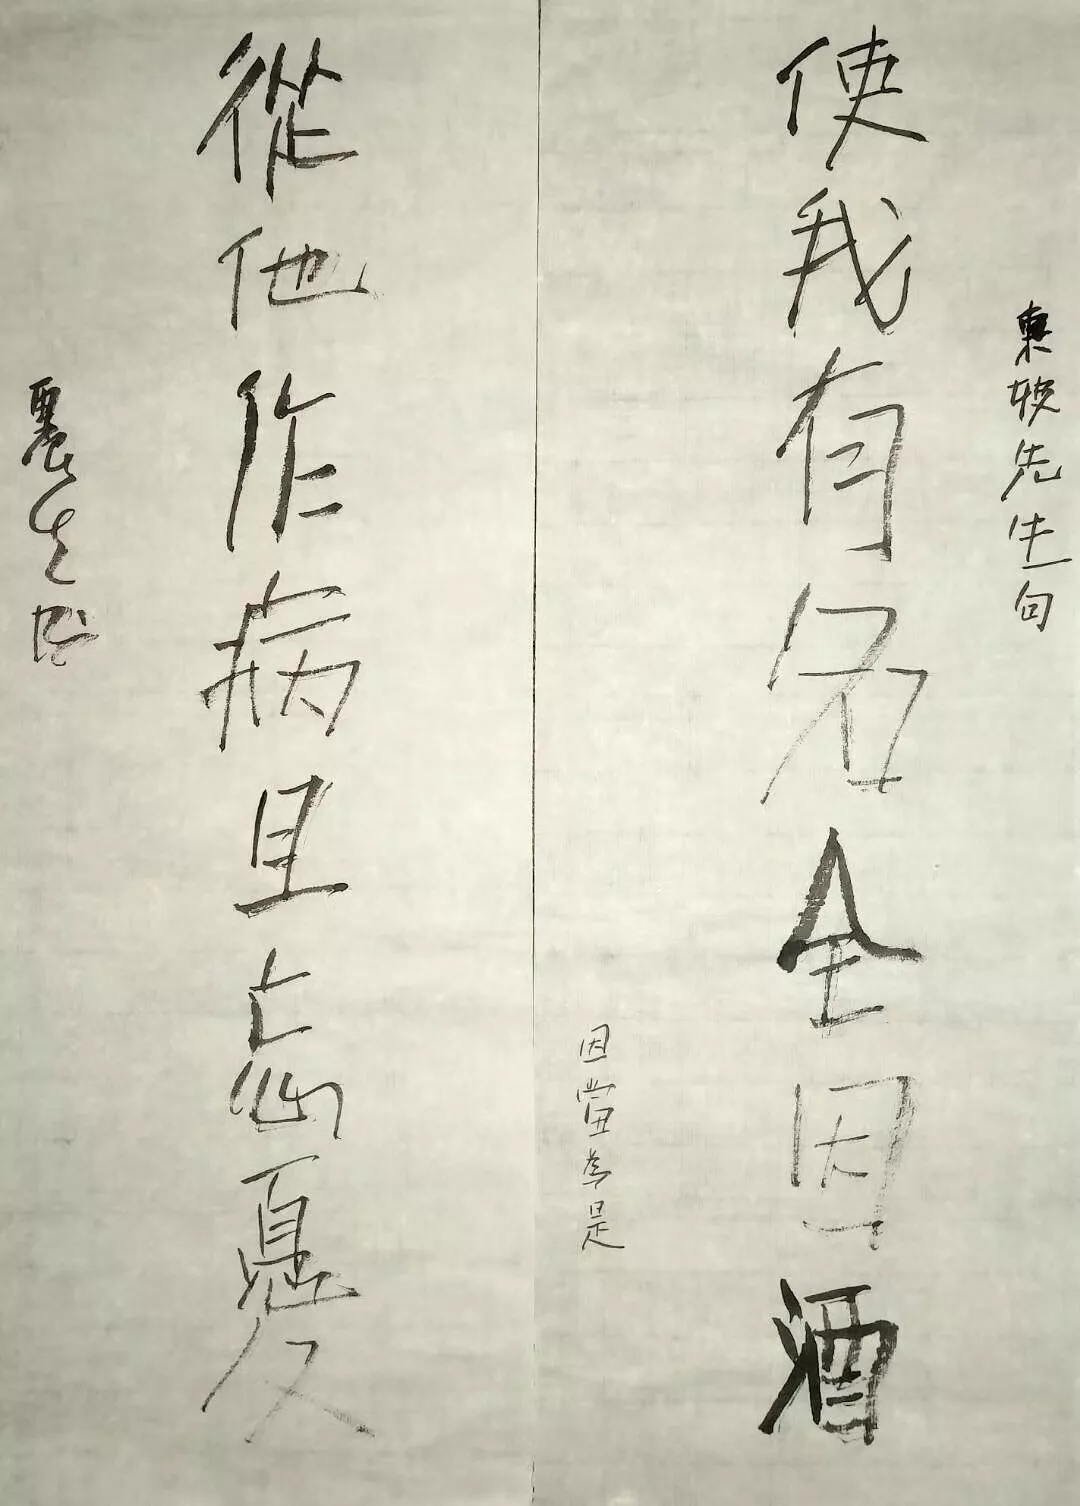 東坡先生句
使我有名全因酒
因當為是
從他作病且忘憂